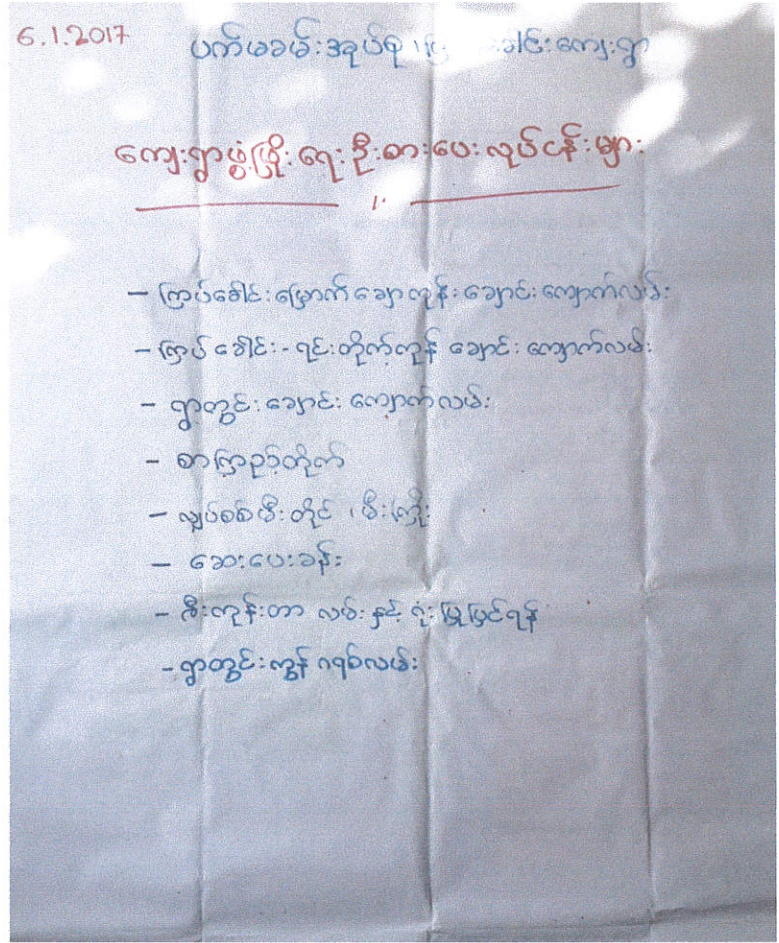 6.1.2017 ပက်မခမ်းအုပ်စု၊ ကြ ခေါင်းကျေးရွာ
ကျေးရွာဖွံ့ဖြိုးရေးဦးစားပေးလုပ်ငန်းများ
၊.
- ကြပ်ခေါင်းမြောက်ချောကုန်းချောင်းကျောက်လမ်း
- ကြပ်ခေါင်း - ရင်းတိုက်ကုန် ချောင်းကျောက်လမ်း
- ရွာတွင်းချောင်းကျောက်လမ်း
- စာကြည့်တိုက်
- လျှပ်စစ်မီးတိုင်၊ မီးကြိုး
- ဆေးပေးခန်း
- နီးကုန်းတာ လမ်းနှင့် ရုံးပြုပြင်ရန်
- ရွာတွင်းကွန်ကရစ်လမ်း